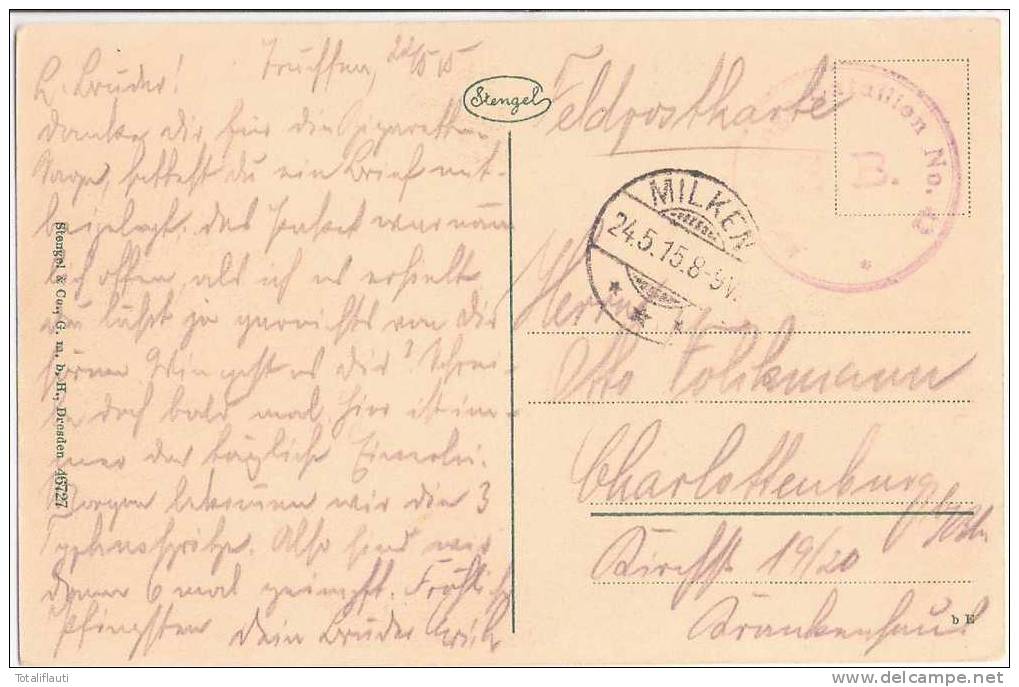 Truchsen, 22/5 15
L. Bruder!
Danke dir für die Zigaretten
Sage, hattest du ein Brief mit-
beigelegt. das Packet war näm-
lich offen, als ich es erhielt
du läßt ja garnichts von dir
hören. Wie geht es dir? Schrei-
be doch bald mal. Hier ist im-
mer das tägliche Einerlei.
Morgen bekommen wir die 3
Typhusspritze. Also sind wir
dann 6 mal geimpft. Fröhliche
Pfingsten Dein Bruder Erich
Stengel & Co., G. m. b. H., Dresden 46727
Stengel
Feldpostkarte
No.
B.
MILKEN
24.5.15.8-9V.
Herrn
Otto Volkmann
Charlottenburg
Kirchstr. 19/20
Krankenhaus
b E
Totaliflauti
www.delcampe.net